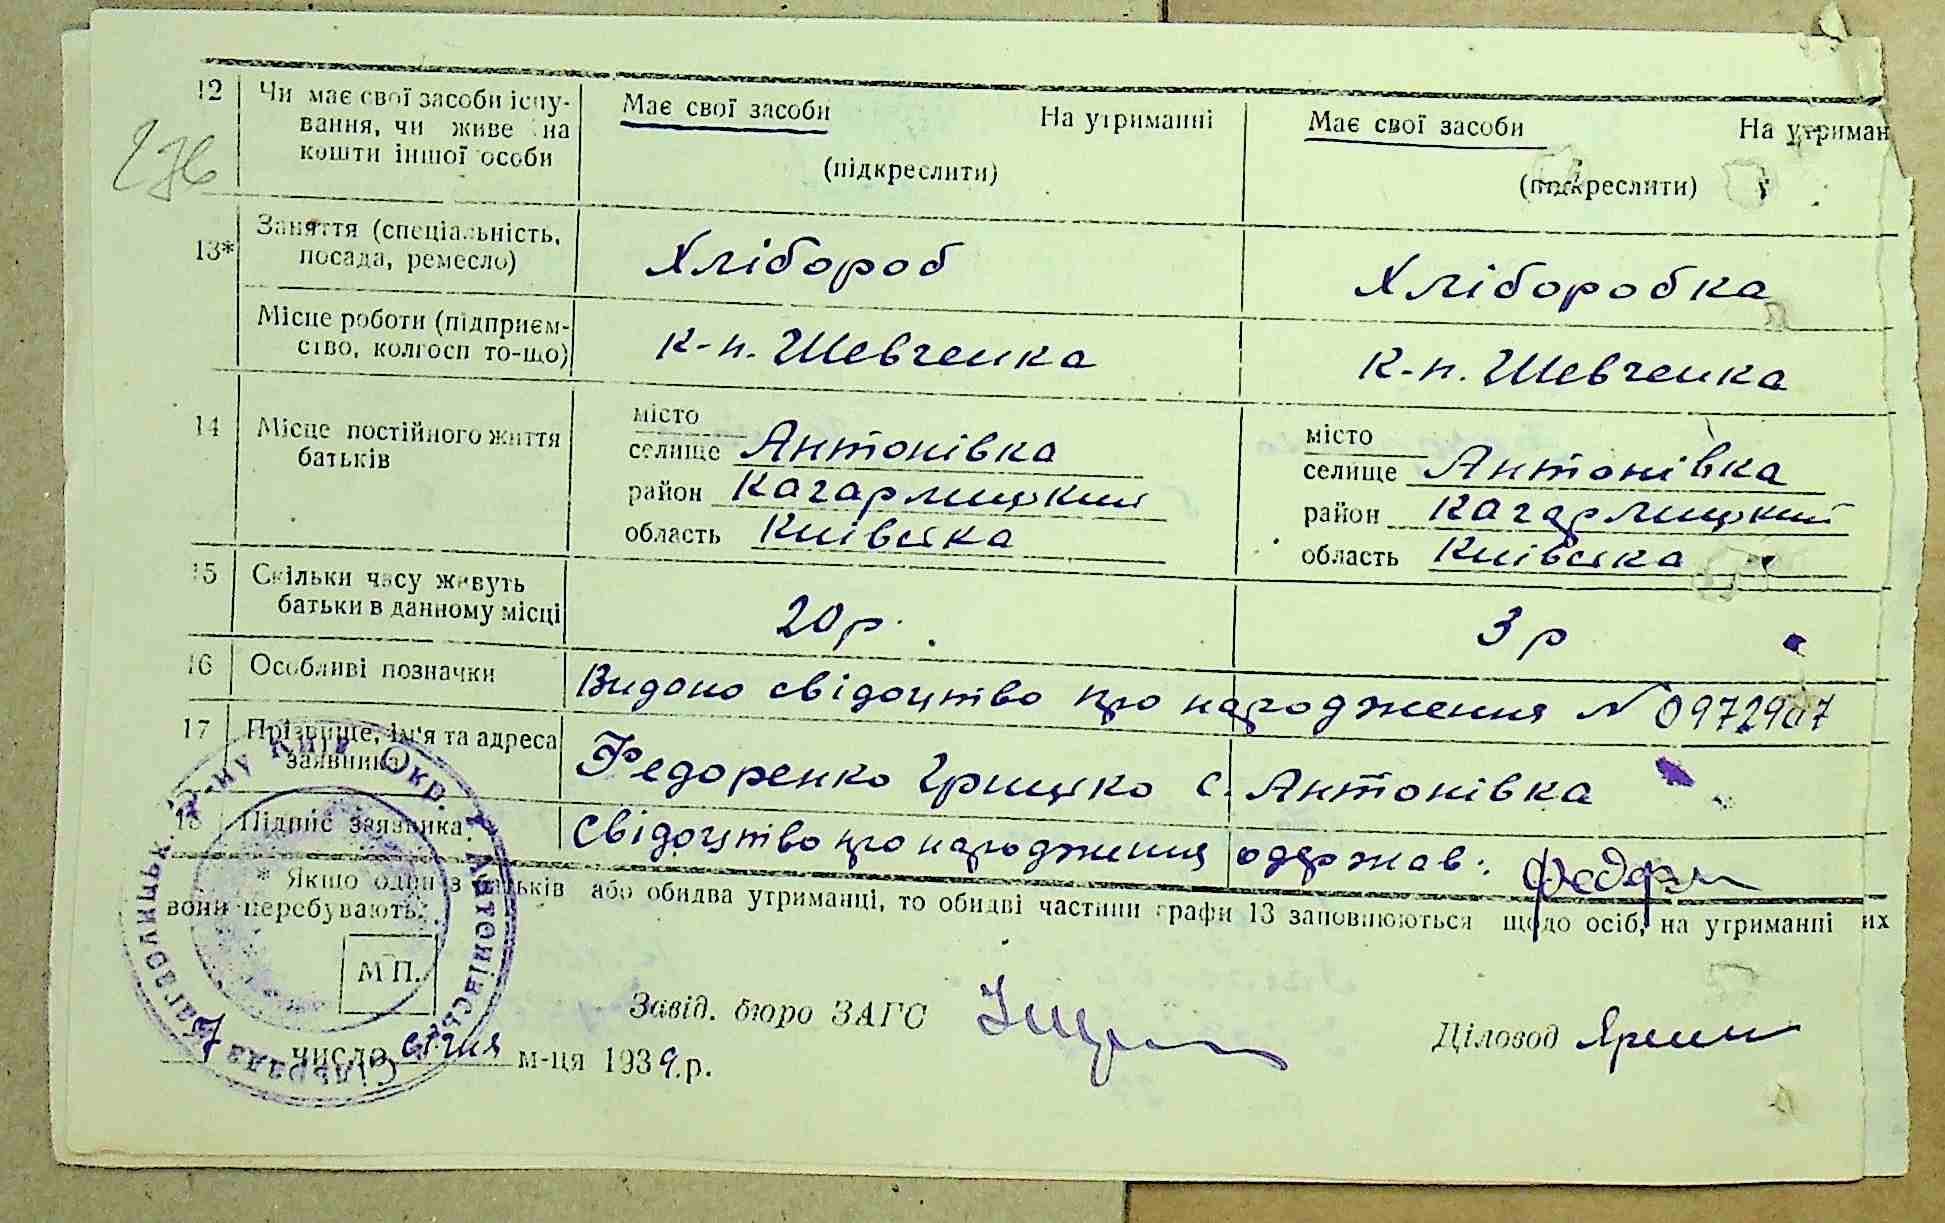 12 Чи має свої засоби існу- Має свої засоби На утриманні Має свої засоби На утриман
вання, чи живе на
кошти іншої особи (підкреслити) (підкреслити)
276
13* Заняття (спеціальність, Хлібороб Хліборобка
посада, ремесло)
Місце роботи (підприєм- к-п. Шевченка к-п. Шевченка
ство, колгосп то-що)
14 Місце постійного життя місто місто
батьків селище Антонівка селище Антонівка
район Кагарлицкий район Кагарлицкий
область Київська область Київська
15 Скільки часу живуть 20 р. 3 р
батьки в данному місці
16 Особливі позначки Видано свідоцтво про народження N 0972907
17 Прізвище, ім'я та адреса Федоренко Грицко с. Антонівка
заявника
18 Підпис заявника Свідоцтво про народження одержав:
* Якщо один з батьків або обидва утриманці, то обидві частини графи 13 заповнюються щодо осіб, на утриманні их
вони перебувають.
М П.
Завід. бюро ЗАГС Діловод
7 число січня м-ця 1939.р.